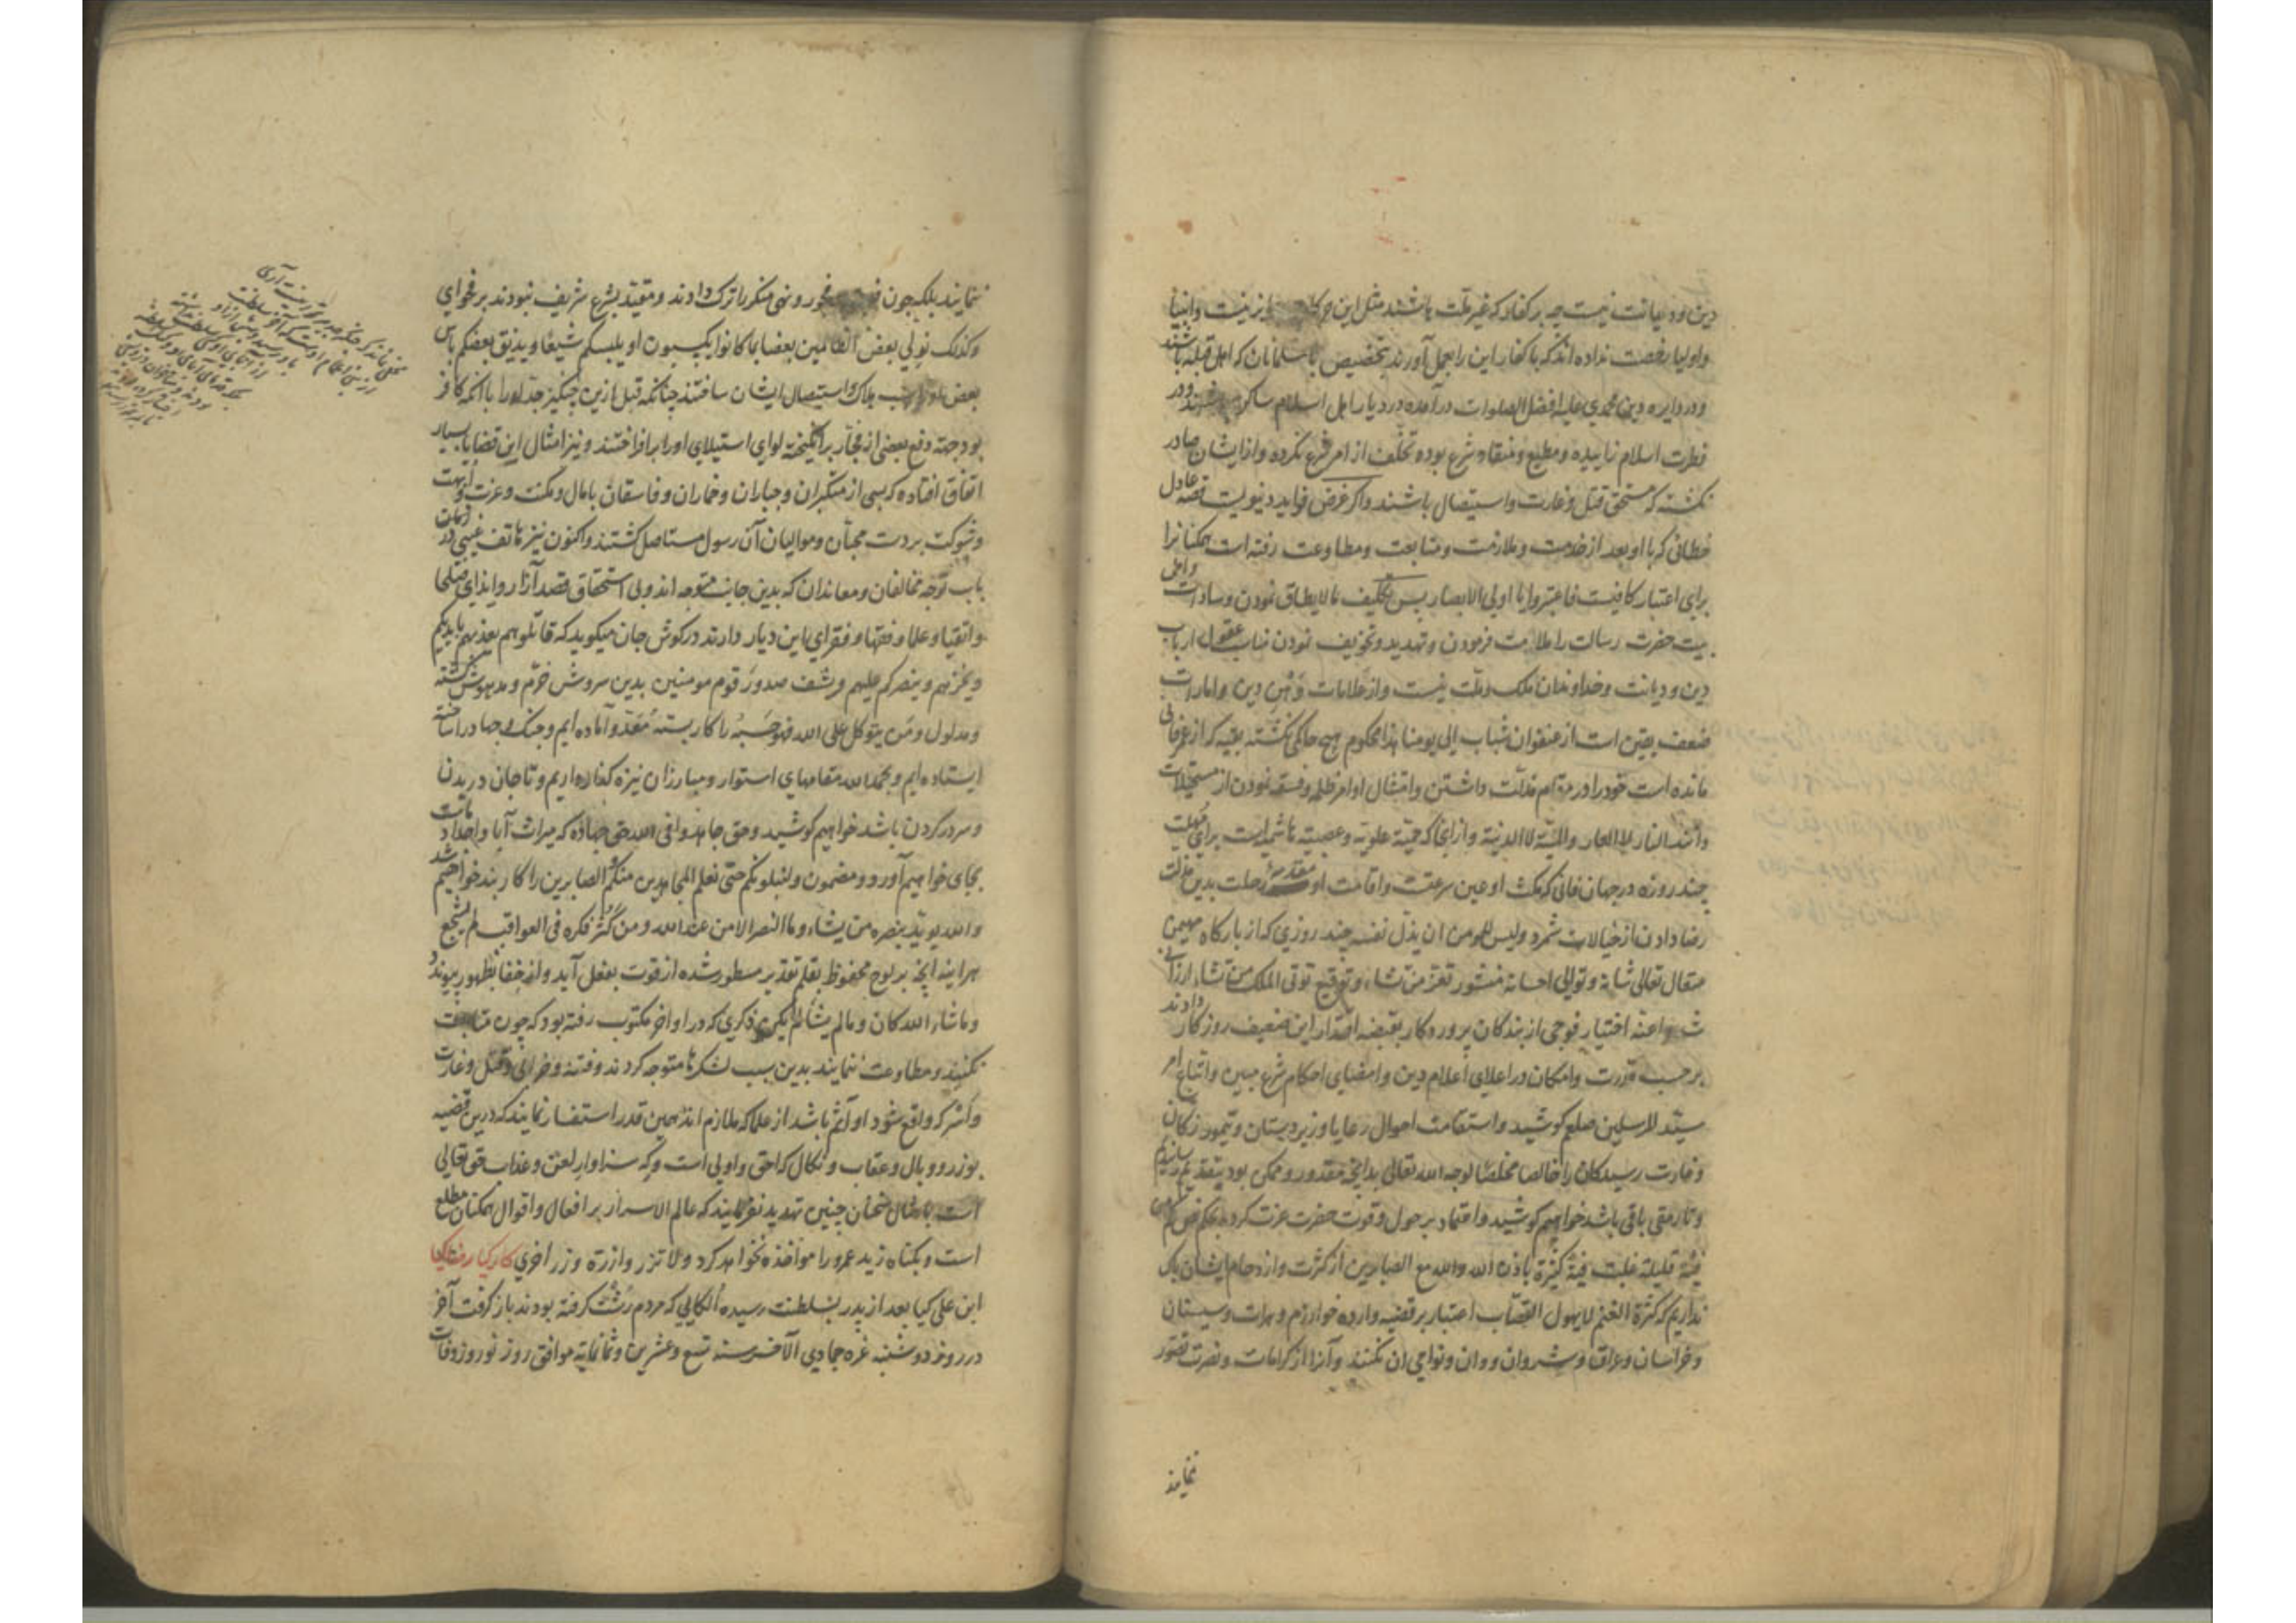 دین و دیانت نیست چه بر کفار که غیر ملت باشند مثل این حرکات جایز نیست و انبیا
و اولیا رخصت نداده اند که با کفار این را بعمل آورند بتخصیص با مسلمانان که اهل قبله باشند
و در دایره دین محمدی علیه افضل الصلوات درآمده در دیار اهل اسلام ساکن باشند و در
فطرت اسلام زاییده و مطیع و منقاد شرع بوده تخلف از امر شرع نکرده و از ایشان صادر
نگشته که مستحق قتل و غارت و استیصال باشند و اگر غرض فواید دنیویست قصه عادل
خطائی که با او بعد از خدمت و ملازمت و متابعت و مطاوعت رفته است همکنانرا
برای اعتبار کافیست فاعتبروا یا اولی الابصار پس تکلیف ما لا یطاق نمودن و سادات و اهل
بیت حضرت رسالت را ملامت فرمودن و تهدید و تخویف نمودن مناسب عقول ارباب
دین و دیانت و خداوندان ملک و ملت نیست و از علامات وهن دین و امارات
ضعف یقین است از عنفوان شباب الی یومنا هذا محکوم هیچ حاکمی نگشته بقیه که از عمر فانی
مانده است خود را در مقام مذلت داشتن و امتثال اوامر ظلمه و فسقه نمودن از مستحیلات
دانند النار و لا العار و المنیة لا الدنیة و از آنجا که حمیّة علویه و عصبیته هاشمیه است برای مهلت
چند روزه در جهان فانی که مکث او عین سرعت و اقامت او مقدمه رحلت بدین مذلت
رضا دادن از خیالات شمرد و لیس للمومن ان یذلّ نفسه چند روزی که از بارگاه مهیمن
متعال تعالی شانه و توالی احسانه منشور تعز من تشاء و توقیع توتی الملک من تشاء ارزانی
داشته و اعنّه اختیار فوجی از بندگان پروردگار بقبضه اقتدار این ضعیف روزگار دادند
بر حسب قدرت و امکان در اعلای اعلام دین و امضای احکام شرع مبین و اتباع امر
سیّد المرسلین صلعم کوشید و استقامت احوال رعایا و زیردستان و تیمور زدگان
و غارت رسیدگان را خالصا مخلصا لوجه الله تعالی بدانچه مقدور و ممکن بود بتقدیم رسانیدم
و تا رمقی باقی باشد خواهیم کوشید و اعتماد بر حول و قوت حضرت عزت کرده بحکم نص کم من
فئة قلیلة غلبت فئة کثیرة باذن الله و الله مع الصابرین از کثرت و ازدحام ایشان باک
نداریم که کثرة الغنم لا یهول القصّاب اعتبار بر قضیه وارده خوارزم و هرات و سیستان
و خراسان و عراق و شروان و وان و نواحی آن نکنند و آنرا از کرامات و نصرت تصور
نمایند
ننمایند بلکه چون فسق و فجور و نهی منکر را ترک دادند و مقید بشرع شریف نبودند بر فحوای
و کذلک نولی بعض الظالمین بعضا بما کانوا یکسبون او یلبسکم شیعًا و یذیق بعضکم باس
بعض هلاک و استیصال ایشان ساختند چنانکه قبل ازین چنگیز جد او را با آنکه کافر
بود جهة دفع بعضی از فجّار برانگیخته لوای استیلای او را برافراختند و نیز امثال این قضایا بسیار
اتفاق افتاده که بسی از متکبران و جباران و خماران و فاسقان با مال و مکنت و عزت و ابهت
و شوکت بر دست محبان و موالیان آن رسول مستاصل گشتند و اکنون نیز هاتف غیبی در
باب توجه مخالفان و معاندان که بدین جانب متوجه اند و بی استحقاق قصد آزار و ایذای صلحا
و اتقیا و علما و فقها و فقرای این دیار دارند در گوش جان میگوید که قاتلوهم یعذبهم بایدیکم
و یخزهم و ینصرکم علیهم و یشف صدور قوم مومنین بدین سروش خرّم و مدهوش گشته
و مدلول و من یتوکل علی الله فهو حسبه را کار بسته مُعَدّ و آماده ایم و جنگ و جهاد را ساخته
ایستاده ایم و بحمد الله مقامهای استوار و مبارزان نیزه گذار داریم و تا جان در بدن
و سر در گردن باشد خواهیم کوشید و حق جاهدوا فی الله حق جهاده که میراث آبا و اجداد ماست
بجای خواهیم آورد و مضمون و لنبلونکم حتی نعلم المجاهدین منکم و الصابرین را کاربند خواهیم شد
و الله یوید بنصره من یشاء و ما النصر الا من عند الله و من کثر فکره فی العواقب لم یشجع
هر آینه آنچه بر لوح محفوظ بقلم تقدیر مسطور شده از قوت بفعل آید و از خفا بظهور پیوندد
و ما شاء الله کان و ما لم یشأ لم یکن ذکری که در اواخر مکتوب رفته بود که چون متابعت
نکنند و مطاوعت ننمایند بدین سبب لشکرها متوجه گردند و فتنه و خرابی و قتل و غارت
و اسر که واقع شود او آثم باشد از علما که ملازم اند همین قدر استفسار نمایند که درین قضیه
بوزر و وبال و عقاب و نکال که احق و اولی است و که سزاوار لعن و عذاب حق تعالی
است بامثال سخنان چنین تهدید نفرمایند که عالم الاسرار بر افعال و اقوال همکنان مطلع
است و بگناه زید عمرو را مواخذه نخواهد کرد و لا تزر وازرة وزر اخری کارکیا رضا کیا
ابن علی کیا بعد از پدر بسلطنت رسیده الکایی که مردم رشت گرفته بودند باز گرفت آخر
در روز دوشنبه غره جمادی الآخر سنه تسع و عشرین و ثمانمایه موافق روز نوروز وفات